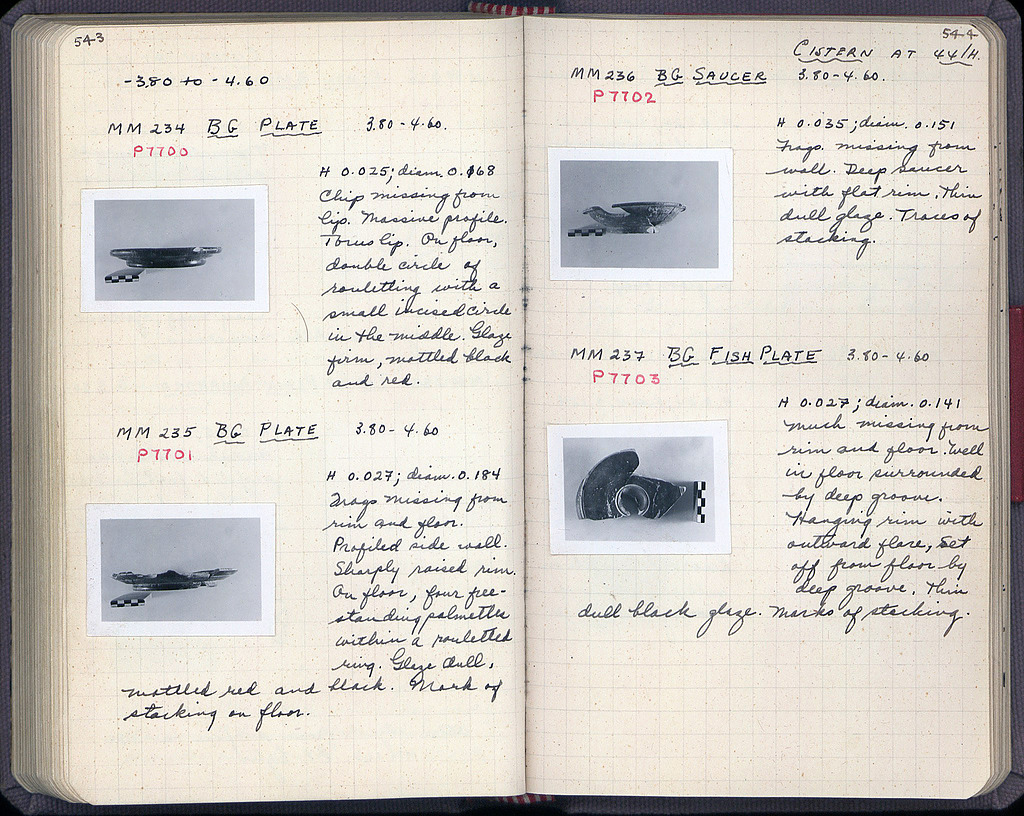 543
-3.80 to -4.60
MM 234 BG PLATE 3.80-4.60.
P7700
H 0.025; diam. 0.168
Chip missing from
lip. Massive profile.
Torus lip. On floor,
double circle of
rouletting with a
small incised circle
in the middle. Glaze
firm, mottled black
and red.
MM 235 BG PLATE 3.80-4.60
P7701
H 0.027; diam. 0.184
Frags missing from
rim and floor.
Profiled side wall.
Sharply raised rim.
On floor, four free-
standing palmettes
within a rouletted
ring. Glaze dull,
mottled red and black. Mark of
stacking on floor.
544
CISTERN AT 44/Η.
MM 236 BG SAUCER 3.80-4.60.
P7702
H 0.035; diam. 0.151
Frags. missing from
wall. Deep saucer
with flat rim. Thin
dull glaze. Traces of
stacking.
MM 237 BG FISH PLATE 3.80-4.60
P7703
H 0.027; diam. 0.141
Much missing from
rim and floor. Well
in floor surrounded
by deep groove.
Hanging rim with
outward flare, set
off from floor by
deep groove. Thin
dull black glaze. Marks of stacking.